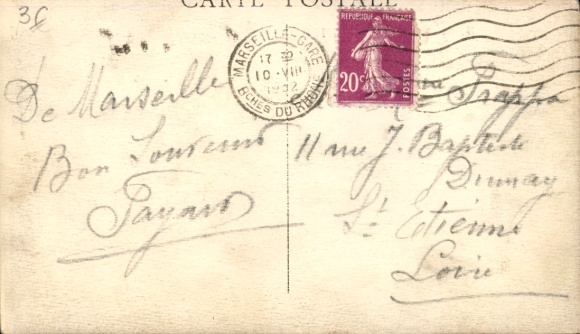 36
CARTE POSTALE
MARSEILLE-GARE
17 30
10 - VIII
1932
BCHES DU RHONE
REPUBLIQUE FRANÇAISE
20c
POSTES
De Marseille
Bon Souvenir
Fayard
Trappa
11 rue J. Baptiste
Durnay
St Etienne
Loire